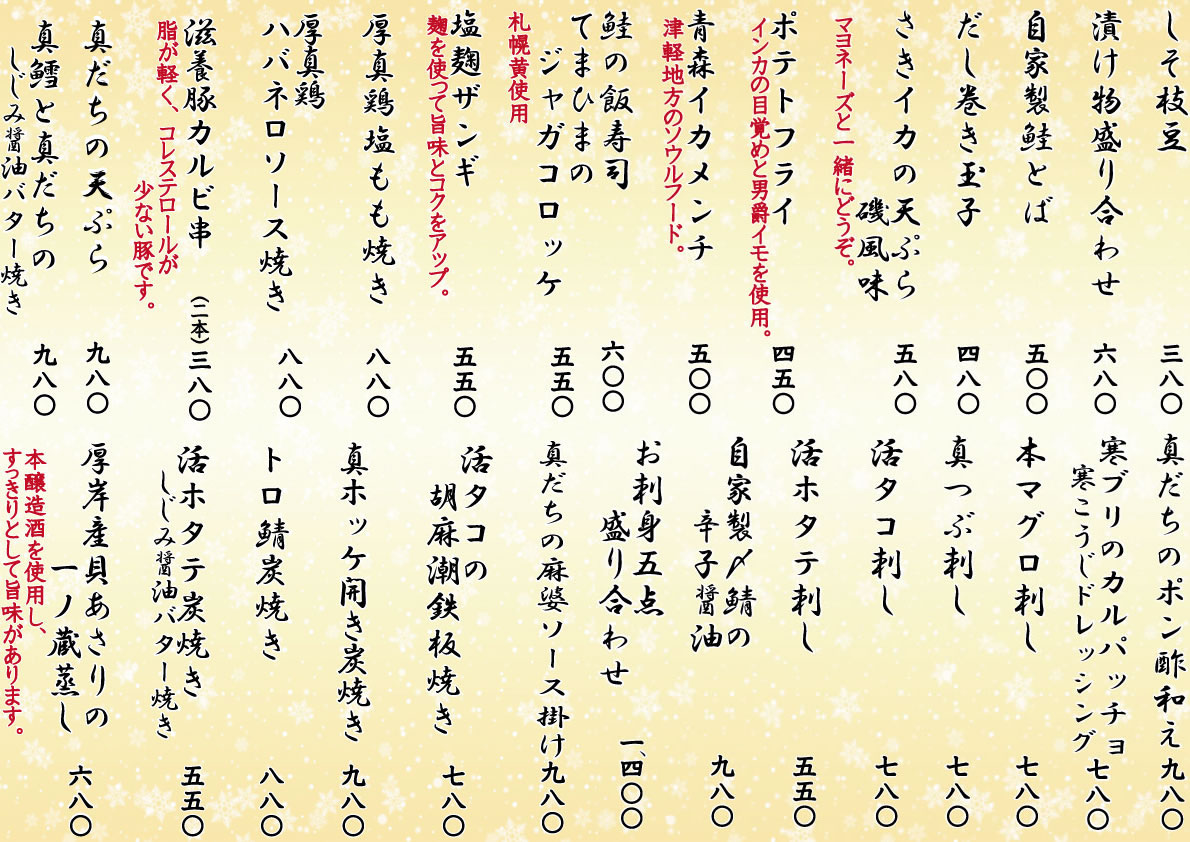 しそ枝豆
三八〇
漬け物盛り合わせ
六八〇
自家製鮭とば
五〇〇
だし巻き玉子
四八〇
さきイカの天ぷら
磯風味
五八〇
マヨネーズと一緒にどうぞ。
ポテトフライ
四五〇
インカの目覚めと男爵イモを使用。
青森イカメンチ
五〇〇
津軽地方のソウルフード。
鮭の飯寿司
六〇〇
てまひまの
ジャガコロッケ
五五〇
札幌黄使用
塩麹ザンギ
五五〇
麹を使って旨味とコクをアップ。
厚真鶏塩もも焼き
八八〇
厚真鶏
ハバネロソース焼き
八八〇
滋養豚カルビ串
(二本)三八〇
脂が軽く、コレステロールが
少ない豚です。
真だちの天ぷら
九八〇
真鱈と真だちの
しじみ醤油バター焼き
九八〇
真だちのポン酢和え
九八〇
寒ブリのカルパッチョ
寒こうじドレッシング
七八〇
本マグロ刺し
七八〇
真つぶ刺し
七八〇
活タコ刺し
七八〇
活ホタテ刺し
五五〇
自家製〆鯖の
辛子醤油
九八〇
お刺身五点
盛り合わせ
一、四〇〇
真だちの麻婆ソース掛け
九八〇
活タコの
胡麻潮鉄板焼き
七八〇
真ホッケ開き炭焼き
九八〇
トロ鯖炭焼き
八八〇
活ホタテ炭焼き
しじみ醤油バター焼き
五五〇
厚岸産貝あさりの
一ノ蔵蒸し
六八〇
本醸造酒を使用し、
すっきりとして旨味があります。